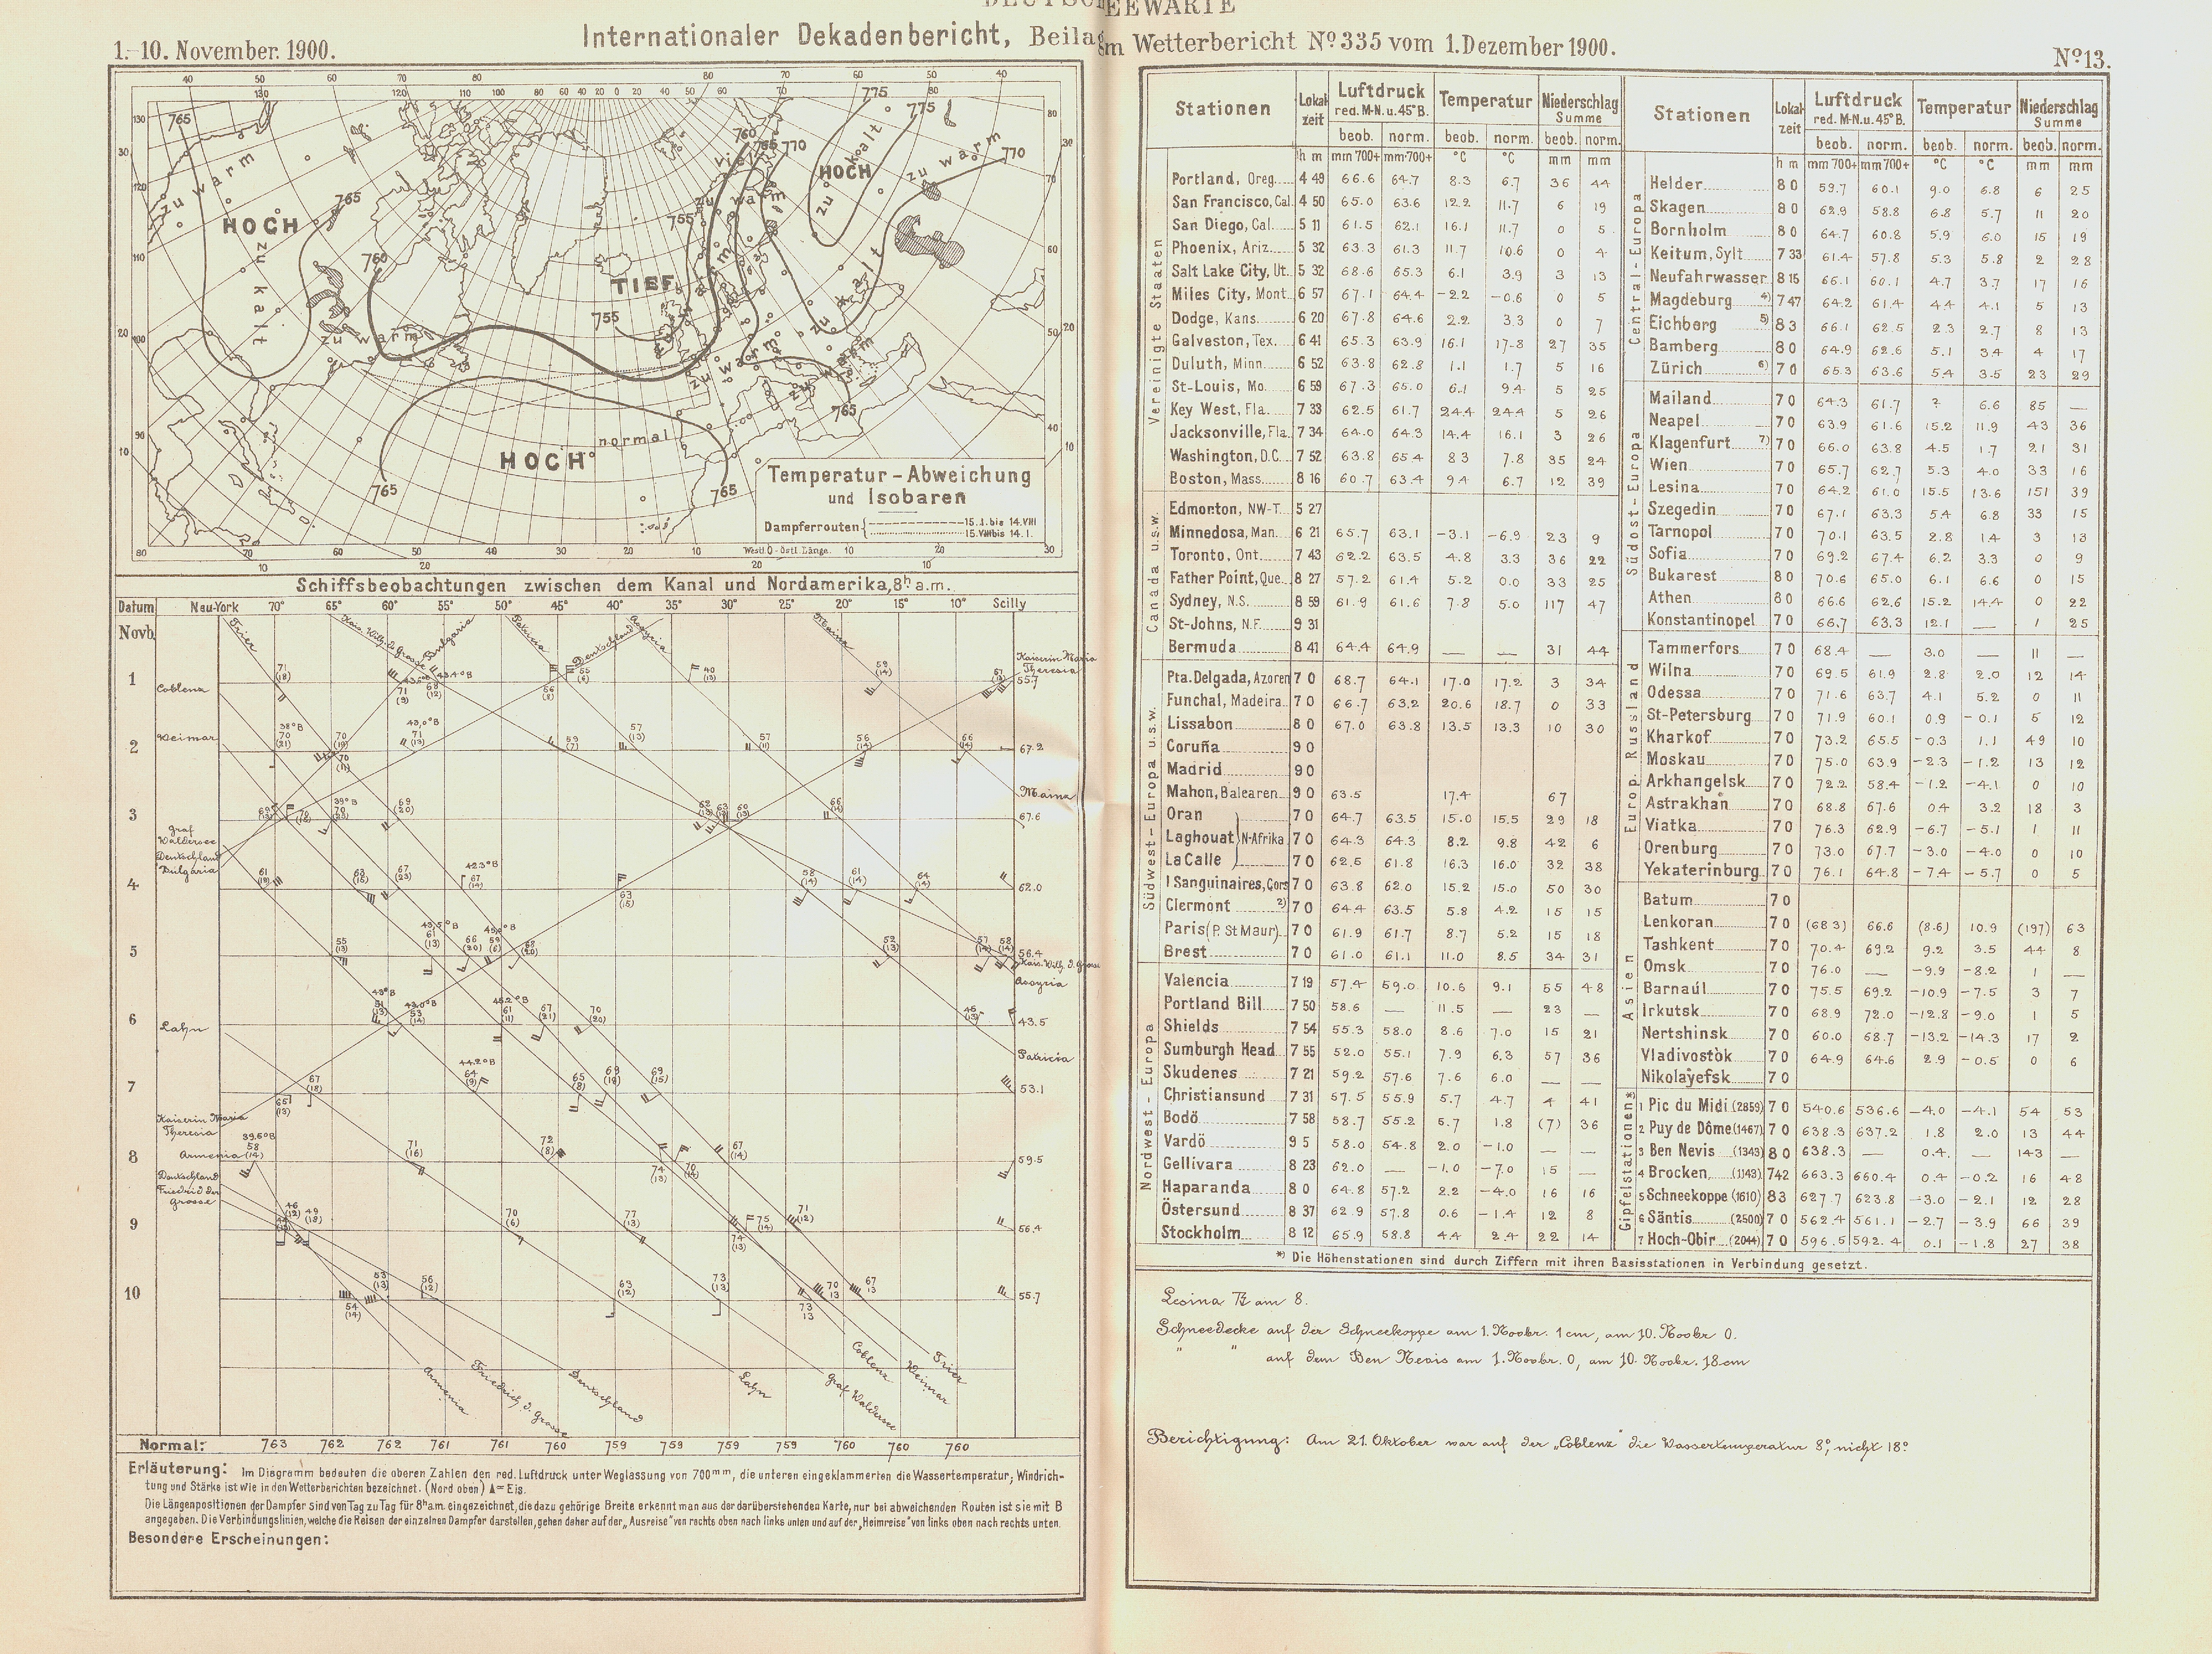 DEUTSCHE SEEWARTE
1.–10. November. 1900.
Internationaler Dekadenbericht, Beilage zum Wetterbericht No 335 vom 1. Dezember 1900.
No 13.
HOCH
HOCH
TIEF
HOCH
zu warm
zu kalt
zu warm
viel zu warm
zu kalt
zu warm
zu kalt
zu warm
zu warm
normal
765 765 760 755 755 760 765 770 775 775 770 765 765 765
Temperatur-Abweichung
und Isobaren
Dampferrouten { 15.I. bis 14.VIII
15.VIII bis 14.I.
Westl. 0 Östl. Länge.
Schiffsbeobachtungen zwischen dem Kanal und Nordamerika, 8h a.m.
Datum Neu-York 70° 65° 60° 55° 50° 45° 40° 35° 30° 25° 20° 15° 10° Scilly
Novb.
Trier Kais. Wilh. d. Grosse Bulgaria Patricia Deutschland Assyria Mainz
Kaiserin Maria Theresia
1 Coblenz 55.7
2 Weimar 67.2
Mainz
3 67.6
Graf Waldersee
Deutschland
Bulgaria
4 62.0
5 56.4
Kais. Wilh. d. Grosse
Assyria
6 Lahn 43.5
Patricia
7 53.1
Kaiserin Maria Theresia
8 Armenia 59.5
Deutschland
Friedrich der Grosse
9 56.4
10 55.7
Armenia Friedrich d. Grosse Deutschland Lahn Graf Waldersee Coblenz Weimar Trier
Normal: 763 762 762 761 761 760 759 759 759 759 760 760 760
Erläuterung: Im Diagramm bedeuten die oberen Zahlen den red. Luftdruck unter Weglassung von 700mm, die unteren eingeklammerten die Wassertemperatur; Windrich-
tung und Stärke ist wie in den Wetterberichten bezeichnet. (Nord oben) ▲ = Eis.
Die Längenpositionen der Dampfer sind von Tag zu Tag für 8h a.m. eingezeichnet, die dazu gehörige Breite erkennt man aus der darüberstehenden Karte, nur bei abweichenden Routen ist sie mit B
angegeben. Die Verbindungslinien, welche die Reisen der einzelnen Dampfer darstellen, gehen daher auf der „Ausreise" von rechts oben nach links unten und auf der „Heimreise" von links oben nach rechts unten.
Besondere Erscheinungen:
Stationen Lokalzeit Luftdruck red. M-N. u. 45° B. Temperatur Niederschlag Summe
beob. norm. beob. norm. beob. norm.
h m mm 700+ mm 700+ °C °C mm mm
Vereinigte Staaten
Portland, Oreg. 4 49 66.6 64.7 8.3 6.7 36 44
San Francisco, Cal. 4 50 65.0 63.6 12.2 11.7 6 19
San Diego, Cal. 5 11 61.5 62.1 16.1 11.7 0 5
Phoenix, Ariz. 5 32 63.3 61.3 11.7 10.6 0 4
Salt Lake City, Ut. 5 32 68.6 65.3 6.1 3.9 3 13
Miles City, Mont. 6 57 67.1 64.4 −2.2 −0.6 0 5
Dodge, Kans. 6 20 67.8 64.6 2.2 3.3 0 7
Galveston, Tex. 6 41 65.3 63.9 16.1 17.8 27 35
Duluth, Minn. 6 52 63.8 62.8 1.1 1.7 5 16
St-Louis, Mo. 6 59 67.3 65.0 6.1 9.4 5 25
Key West, Fla. 7 33 62.5 61.7 24.4 24.4 5 26
Jacksonville, Fla. 7 34 64.0 64.3 14.4 16.1 3 26
Washington, D.C. 7 52 63.8 65.4 8.3 7.8 35 24
Boston, Mass. 8 16 60.7 63.4 9.4 6.7 12 39
Canada u.s.w.
Edmonton, NW-T. 5 27
Minnedosa, Man. 6 21 65.7 63.1 −3.1 −6.9 23 9
Toronto, Ont. 7 43 62.2 63.5 4.8 3.3 36 22
Father Point, Que. 8 27 57.2 61.4 5.2 0.0 33 25
Sydney, N.S. 8 59 61.9 61.6 7.8 5.0 117 47
St-Johns, N.F. 9 31
Bermuda 8 41 64.4 64.9 — — 31 44
Südwest-Europa u.s.w.
Pta. Delgada, Azoren 7 0 68.7 64.1 17.0 17.2 3 34
Funchal, Madeira 7 0 66.7 63.2 20.6 18.7 0 33
Lissabon 8 0 67.0 63.8 13.5 13.3 10 30
Coruña 9 0
Madrid 9 0
Mahon, Balearen 9 0 63.5 17.4 67
Oran 7 0 64.7 63.5 15.0 15.5 29 18
Laghouat } N-Afrika 7 0 64.3 64.3 8.2 9.8 42 6
La Calle 7 0 62.5 61.8 16.3 16.0 32 38
I Sanguinaires, Cors 7 0 63.8 62.0 15.2 15.0 50 30
Clermont 2) 7 0 64.4 63.5 5.8 4.2 15 15
Paris (P. St Maur) 7 0 61.9 61.7 8.7 5.2 15 18
Brest 7 0 61.0 61.1 11.0 8.5 34 31
Nordwest-Europa
Valencia 7 19 57.4 59.0 10.6 9.1 55 48
Portland Bill 7 50 58.6 — 11.5 — 23 —
Shields 7 54 55.3 58.0 8.6 7.0 15 21
Sumburgh Head 7 55 52.0 55.1 7.9 6.3 57 36
Skudenes 7 21 59.2 57.6 7.6 6.0 — —
Christiansund 7 31 57.5 55.9 5.7 4.7 4 41
Bodö 7 58 58.7 55.2 5.7 1.8 (7) 36
Vardö 9 5 58.0 54.8 2.0 −1.0 — —
Gellivara 8 23 62.0 — −1.0 −7.0 15 —
Haparanda 8 0 64.8 57.2 2.2 −4.0 16 16
Östersund 8 37 62.9 57.8 0.6 −1.4 12 8
Stockholm 8 12 65.9 58.8 4.4 2.4 22 14
Stationen Lokalzeit Luftdruck red. M-N. u. 45° B. Temperatur Niederschlag Summe
beob. norm. beob. norm. beob. norm.
h m mm 700+ mm 700+ °C °C mm mm
Central-Europa
Helder 8 0 59.7 60.1 9.0 6.8 6 25
Skagen 8 0 62.9 58.8 6.8 5.7 11 20
Bornholm 8 0 64.7 60.8 5.9 6.0 15 19
Keitum, Sylt 7 33 61.4 57.8 5.3 5.8 2 28
Neufahrwasser 8 15 66.1 60.1 4.7 3.7 17 16
Magdeburg 4) 7 47 64.2 61.4 4.4 4.1 5 13
Eichberg 5) 8 3 66.1 62.5 2.3 2.7 8 13
Bamberg 8 0 64.9 62.6 5.1 3.4 4 17
Zürich 6) 7 0 65.3 63.6 5.4 3.5 23 29
Südost-Europa
Mailand 7 0 64.3 61.7 ? 6.6 85 —
Neapel 7 0 63.9 61.6 15.2 11.9 43 36
Klagenfurt 7) 7 0 66.0 63.8 4.5 1.7 21 31
Wien 7 0 65.7 62.7 5.3 4.0 33 16
Lesina 7 0 64.2 61.0 15.5 13.6 151 39
Szegedin 7 0 67.1 63.3 5.4 6.8 33 15
Tarnopol 7 0 70.1 63.5 2.8 1.4 3 13
Sofia 7 0 69.2 67.4 6.2 3.3 0 9
Bukarest 8 0 70.6 65.0 6.1 6.6 0 15
Athen 8 0 66.6 62.6 15.2 14.4 0 22
Konstantinopel 7 0 66.7 63.3 12.1 — 1 25
Europ. Russland
Tammerfors 7 0 68.4 — 3.0 — 11 —
Wilna 7 0 69.5 61.9 2.8 2.0 12 14
Odessa 7 0 71.6 63.7 4.1 5.2 0 11
St-Petersburg 7 0 71.9 60.1 0.9 −0.1 5 12
Kharkof 7 0 73.2 65.5 −0.3 1.1 49 10
Moskau 7 0 75.0 63.9 −2.3 −1.2 13 12
Arkhangelsk 7 0 72.2 58.4 −1.2 −4.1 0 10
Astrakhan 7 0 68.8 67.6 0.4 3.2 18 3
Viatka 7 0 76.3 62.9 −6.7 −5.1 1 11
Orenburg 7 0 73.0 67.7 −3.0 −4.0 0 10
Yekaterinburg 7 0 76.1 64.8 −7.4 −5.7 0 5
Asien
Batum 7 0
Lenkoran 7 0 (68.3) 66.6 (8.6) 10.9 (197) 63
Tashkent 7 0 70.4 69.2 9.2 3.5 44 8
Omsk 7 0 76.0 — −9.9 −8.2 1 —
Barnaúl 7 0 75.5 69.2 −10.9 −7.5 3 7
Irkutsk 7 0 68.9 72.0 −12.8 −9.0 1 5
Nertshinsk 7 0 60.0 68.7 −13.2 −14.3 17 2
Vladivostòk 7 0 64.9 64.6 2.9 −0.5 0 6
Nikolayefsk 7 0
Gipfelstationen*
1 Pic du Midi (2859) 7 0 540.6 536.6 −4.0 −4.1 54 53
2 Puy de Dôme (1467) 7 0 638.3 637.2 1.8 2.0 13 44
3 Ben Nevis (1343) 8 0 638.3 — 0.4 — 143 —
4 Brocken (1143) 7 42 663.3 660.4 0.4 −0.2 16 48
5 Schneekoppe (1610) 8 3 627.7 623.8 −3.0 −2.1 12 28
6 Säntis (2500) 7 0 562.4 561.1 −2.7 −3.9 66 39
7 Hoch-Obir (2044) 7 0 596.5 592.4 0.1 −1.8 27 38
*) Die Höhenstationen sind durch Ziffern mit ihren Basisstationen in Verbindung gesetzt.
Lesina am 8.
Schneedecke auf der Schneekoppe am 1. Novbr. 1 cm, am 10. Novbr 0.
" " auf dem Ben Nevis am 1. Novbr. 0, am 10. Novbr. 18 cm
Berichtigung: Am 21. Oktober war auf der „Coblenz" die Wassertemperatur 8°, nicht 18°